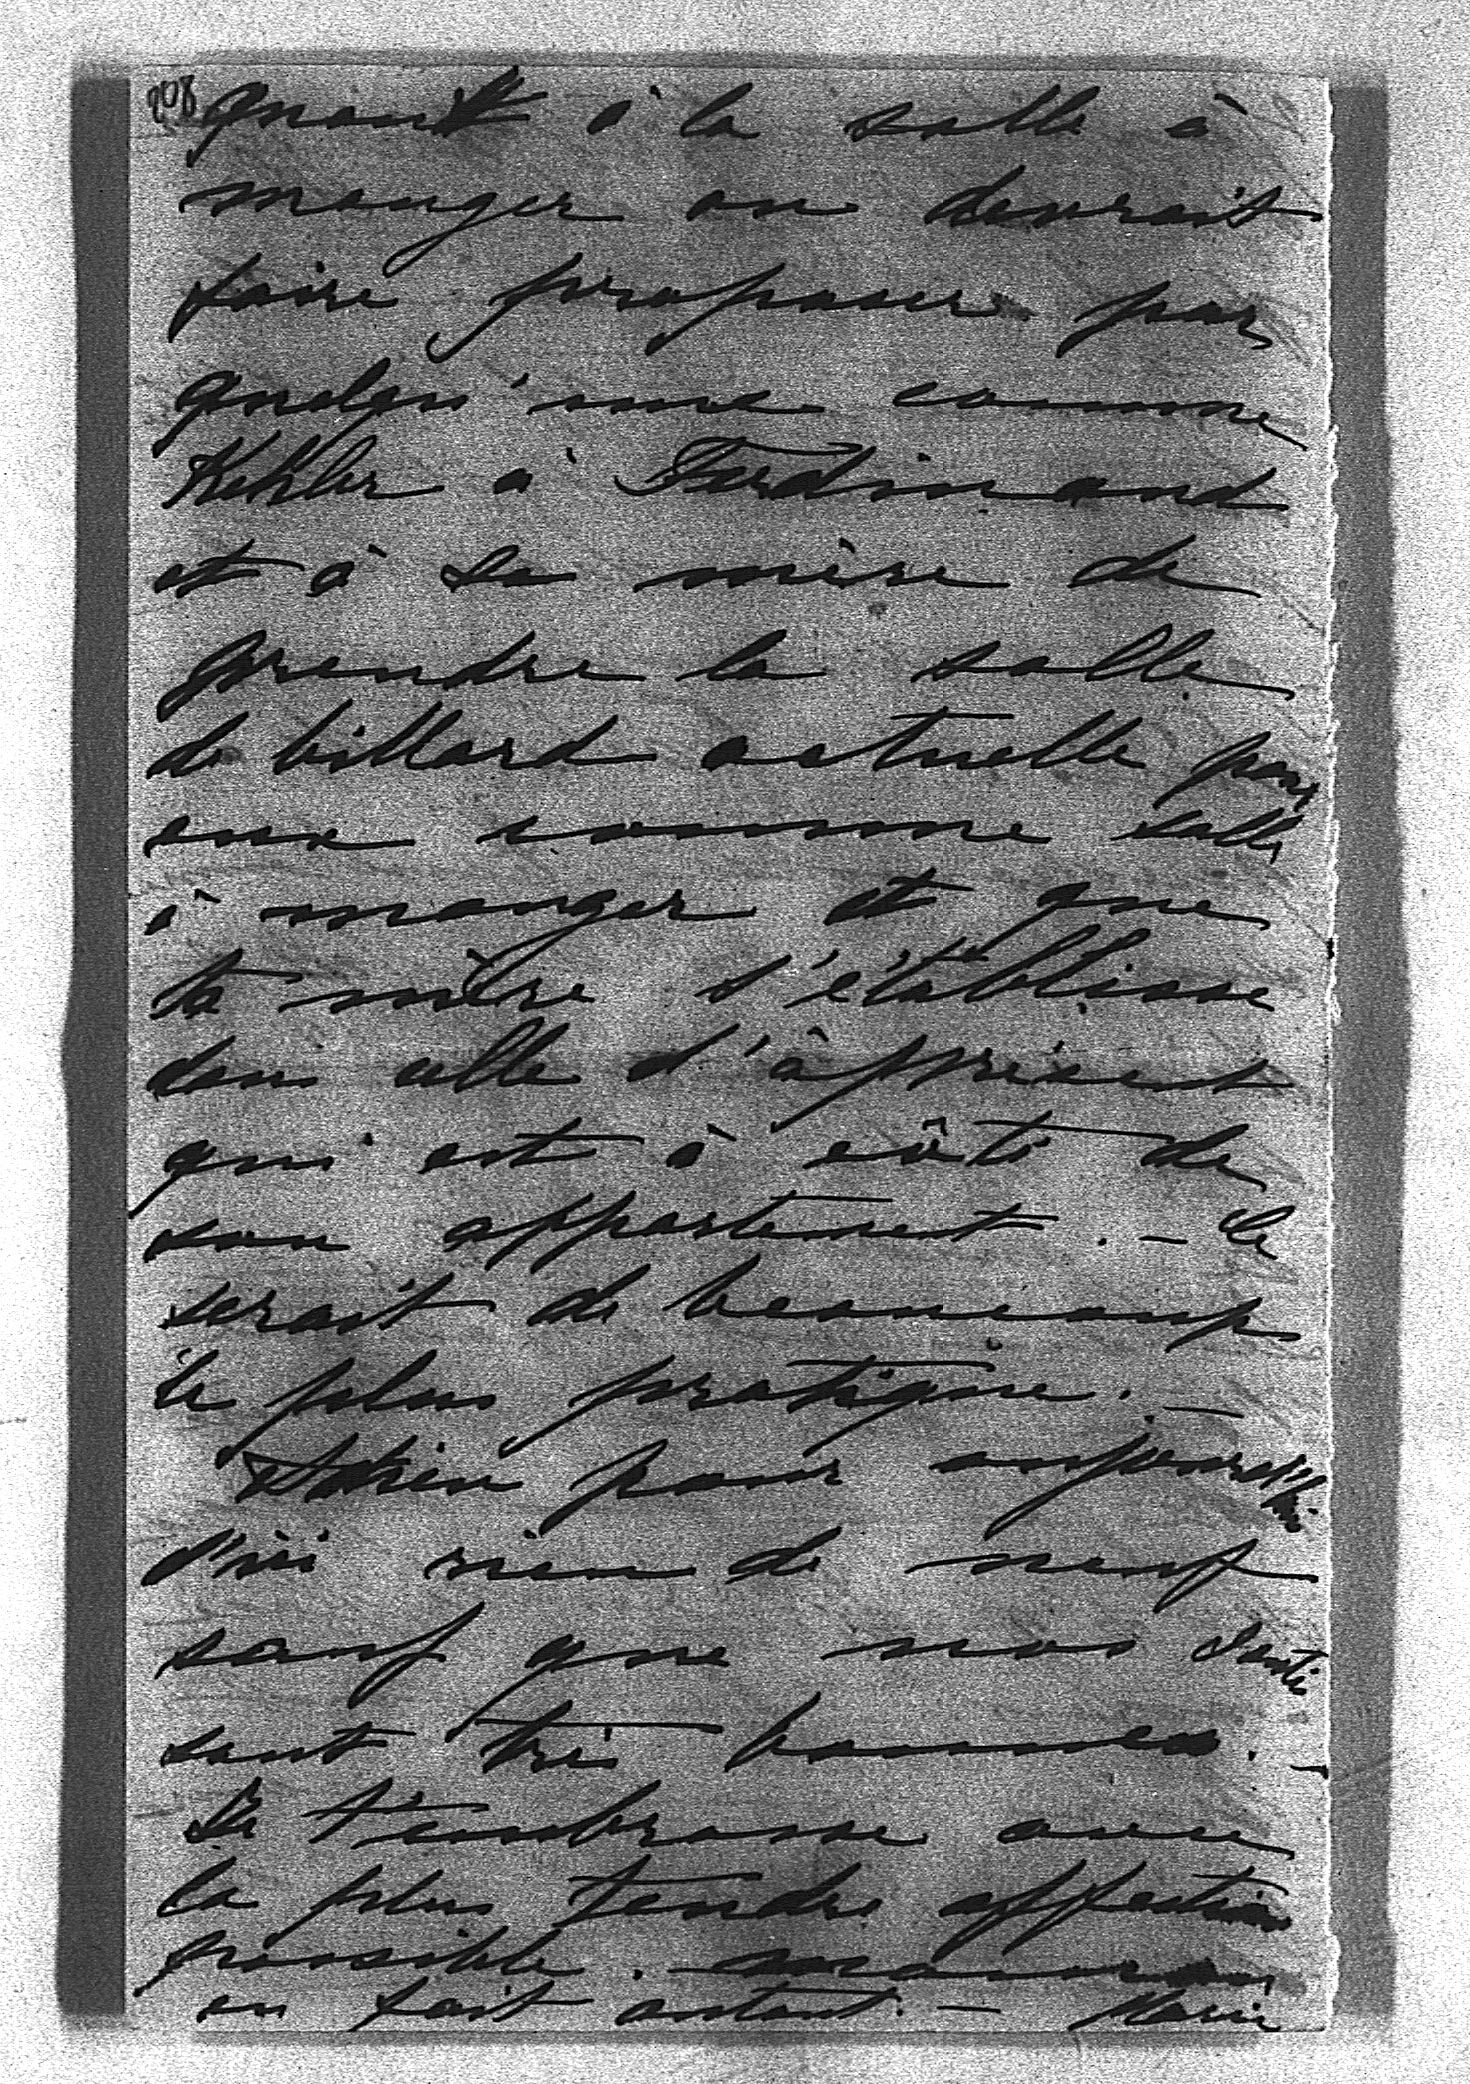 208 quant à la salle à
manger on devrait
faire proposer par
quelqu'une comme
Kehler à Ferdinand
et à sa mère de
prendre la salle
de billard actuelle pour
eux comme salle
à manger et que
ta mère s'établisse
dans celle d'àprésent
qui est à côté de
son appartement. – Ce
serait de beaucoup
le plus pratique. –
Adieu pour aujourd'hui
d'ici rien de neuf
sauf que nos santés
sont très bonnes. –
Je t'embrasse avec
la plus tendre affection
possible. maman
en fait autant. – Marie